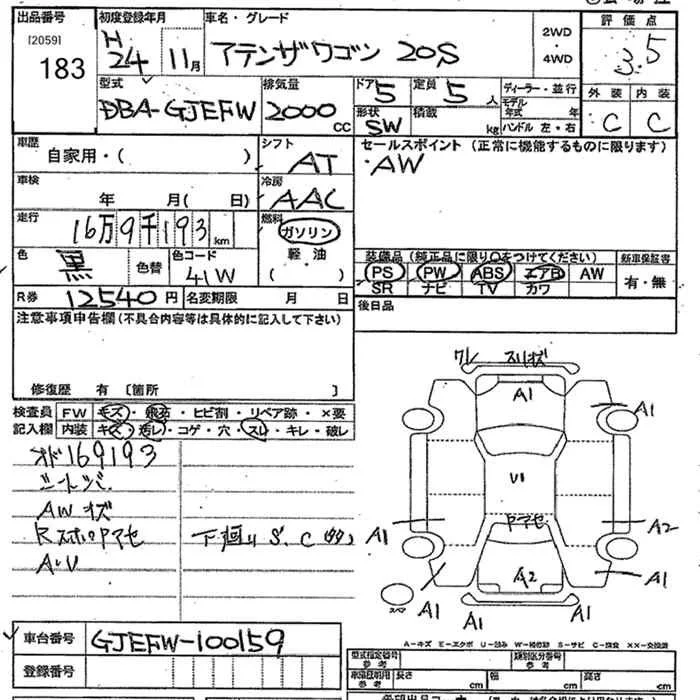 出品番号 初度登録年月 車名・グレード 評価点
[2059] 183 H24 11月 アテンザワゴン 20S 2WD・4WD 3.5
型式 排気量 ドア 定員 ディーラー・並行 外装 内装
DBA-GJEFW 2000cc 5 5人 モデル年式 年 C C
形状 SW 積載 kg ハンドル 左・右
車歴 自家用・( ) シフト AT セールスポイント (正常に機能するものに限ります)
・AW
車検 年 月( 日) 冷房 AAC
走行 16万9千193km 燃料 ガソリン
軽・油
( )
色 黒 色替 色コード 41W
装備品 (純正品に限り○をつけてください) 新車保証書
PS PW ABS エアB AW 有・無
SR ナビ TV カワ
R券 12540円 名変期限 月 日 後日品
注意事項申告欄(不具合内容等は具体的に記入して下さい)
修復歴 有 [箇所 ]
検査員 FW キズ・飛石・ヒビ割・リペア跡・×要
記入欄 内装 キズ・汚レ・コゲ・穴・スレ・キレ・破レ
169193
AWキズ
下廻りS、C
A・U
A1
A1
U1
A1 A2
A2
A1 A1
A1 A1
A-キズ E-エクボ U-凹み W-補修跡 S-サビ C-腐食 XX-交換済
車台番号 GJEFW-100159
登録番号
型式指定番号 参考 類別区分番号 参考
長さ cm 幅 cm 高さ cm